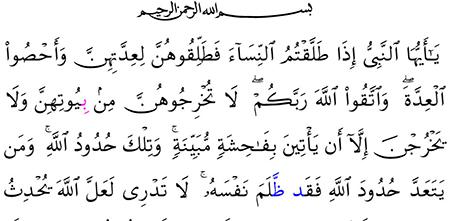 بِسْمِ ٱللَّهِ ٱلرَّحْمَٰنِ ٱلرَّحِيمِ
يَٰٓأَيُّهَا ٱلنَّبِىُّ إِذَا طَلَّقْتُمُ ٱلنِّسَآءَ فَطَلِّقُوهُنَّ لِعِدَّتِهِنَّ وَأَحْصُوا۟
ٱلْعِدَّةَ ۖ وَٱتَّقُوا۟ ٱللَّهَ رَبَّكُمْ ۖ لَا تُخْرِجُوهُنَّ مِنۢ بِيُوتِهِنَّ وَلَا
يَخْرُجْنَ إِلَّآ أَن يَأْتِينَ بِفَٰحِشَةٍ مُّبَيِّنَةٍ ۚ وَتِلْكَ حُدُودُ ٱللَّهِ ۚ وَمَن
يَتَعَدَّ حُدُودَ ٱللَّهِ فَقَد ظَّلَمَ نَفْسَهُۥ ۚ لَا تَدْرِى لَعَلَّ ٱللَّهَ يُحْدِثُ